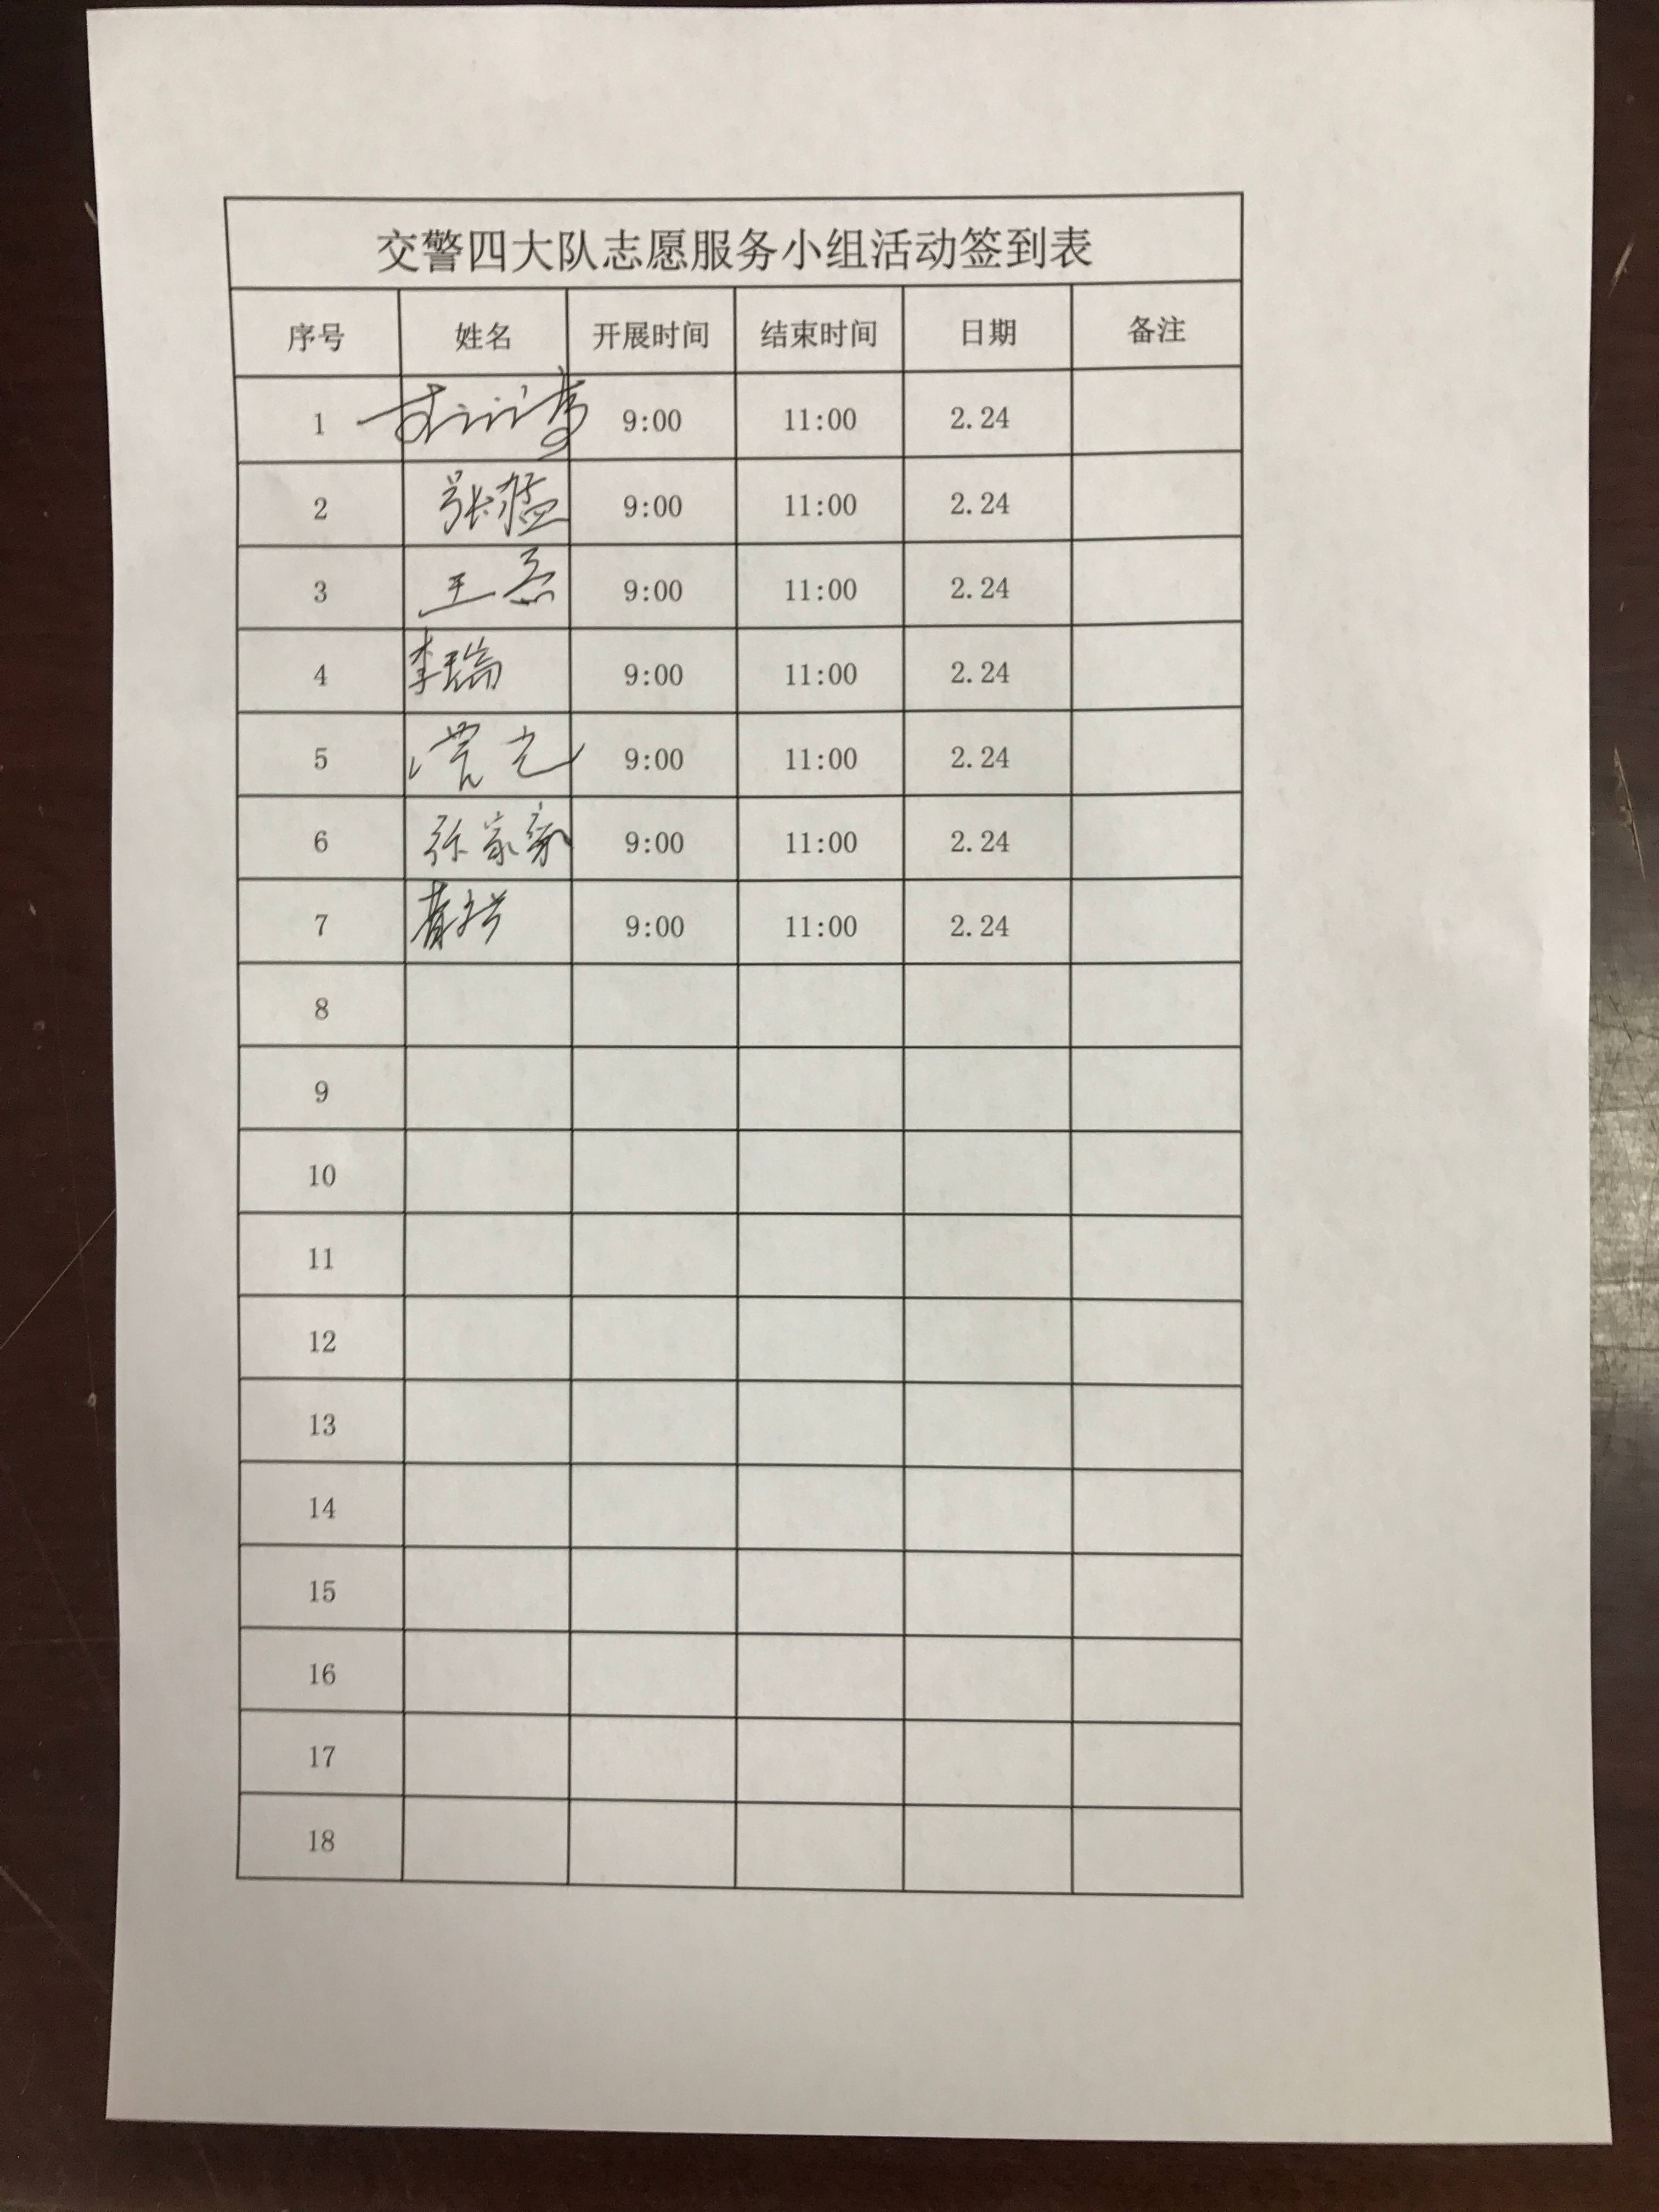 交警四大队志愿服务小组活动签到表
序号 姓名 开展时间 结束时间 日期 备注
1 9:00 11:00 2.24
2 张猛 9:00 11:00 2.24
3 王磊 9:00 11:00 2.24
4 李瑞 9:00 11:00 2.24
5 9:00 11:00 2.24
6 张家豪 9:00 11:00 2.24
7 9:00 11:00 2.24
8
9
10
11
12
13
14
15
16
17
18